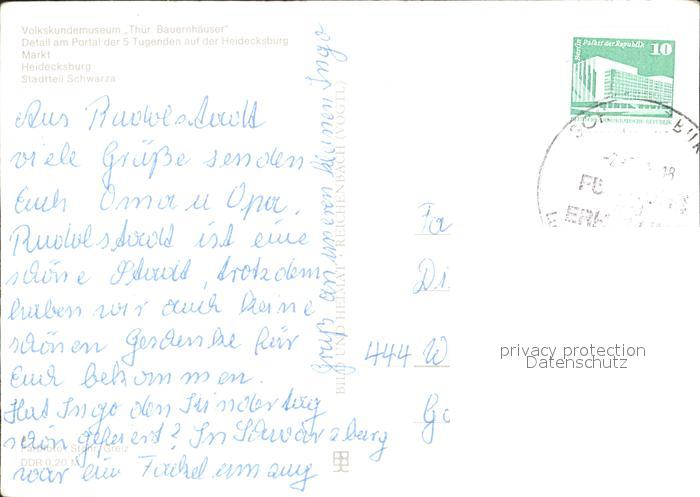 Volkskundemuseum „Thür. Bauernhäuser"
Detail am Portal der 5 Tugenden auf der Heidecksburg
Markt
Heidecksburg
Stadtteil Schwarza
Aus Rudolstadt
viele Grüße senden
Euch Oma u Opa.
Rudolstadt ist eine
schöne Stadt, trotzdem
haben wir auch keine
schönen Geschenke für
Euch bekommen.
Hat Ingo den Kindertag
schön gefeiert? In Schwarzburg
war ein Fackelumzug
Gruß an unseren kleinen Ingo
BILD UND HEIMAT · REICHENBACH (VOGTL)
Greiz
DDR 0,20 M
Berlin Palast der Republik
10
DEUTSCHE DEMOKRATISCHE REPUBLIK
Fa
Di
444 W
privacy protection
Datenschutz